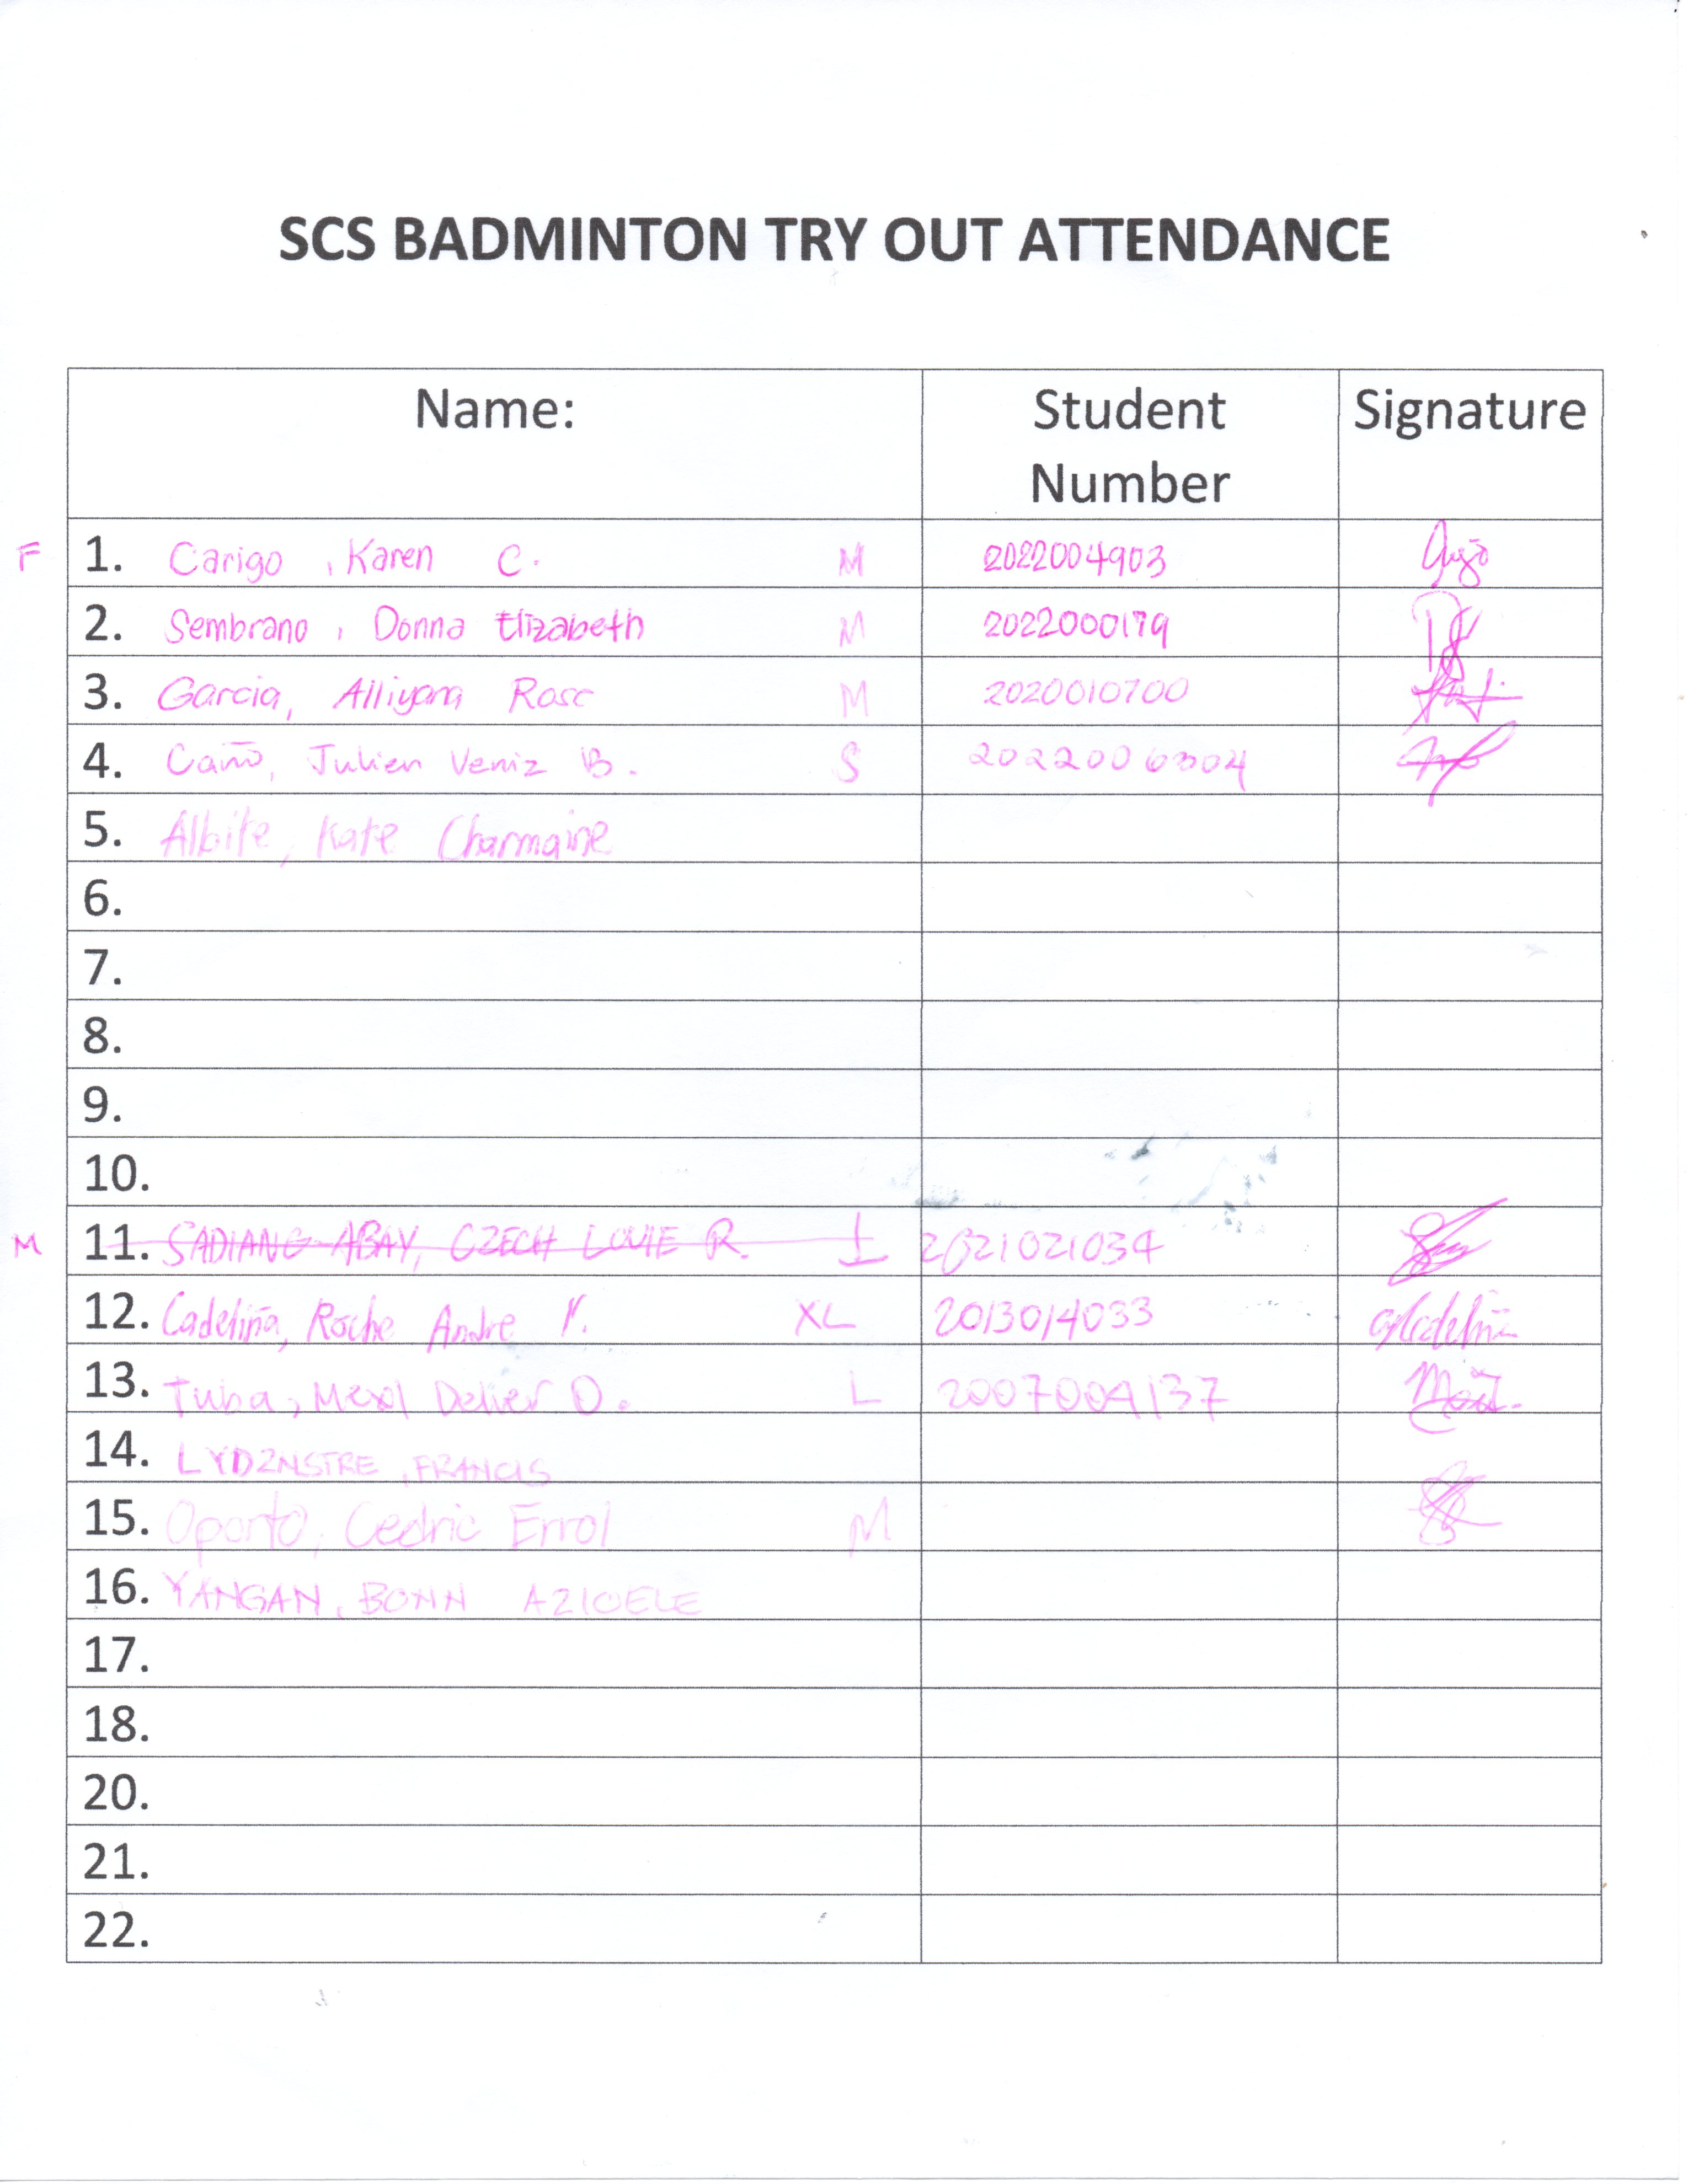 SCS BADMINTON TRY OUT ATTENDANCE
Name: Student Number Signature
F 1. Carigo, Karen C. M 2022004903
2. Sembrano, Donna Elizabeth M 2022000179
3. Garcia, Alliyana Rose M 2020010700
4. Caño, Julien Veniz B. S 2022006304
5. Albite, Kate Charmaine
6.
7.
8.
9.
10.
M 11. SADIANG-ABAY, CZECH LOUIE R. L 2021021034
12. Cadeliña, Roche Andre Y. XL 2013014033
13. Tuba, D. L 2007004137
14. FRANCIS
15. Oporto, Cedric Errol M
16. YANGAN, BONN
17.
18.
20.
21.
22.